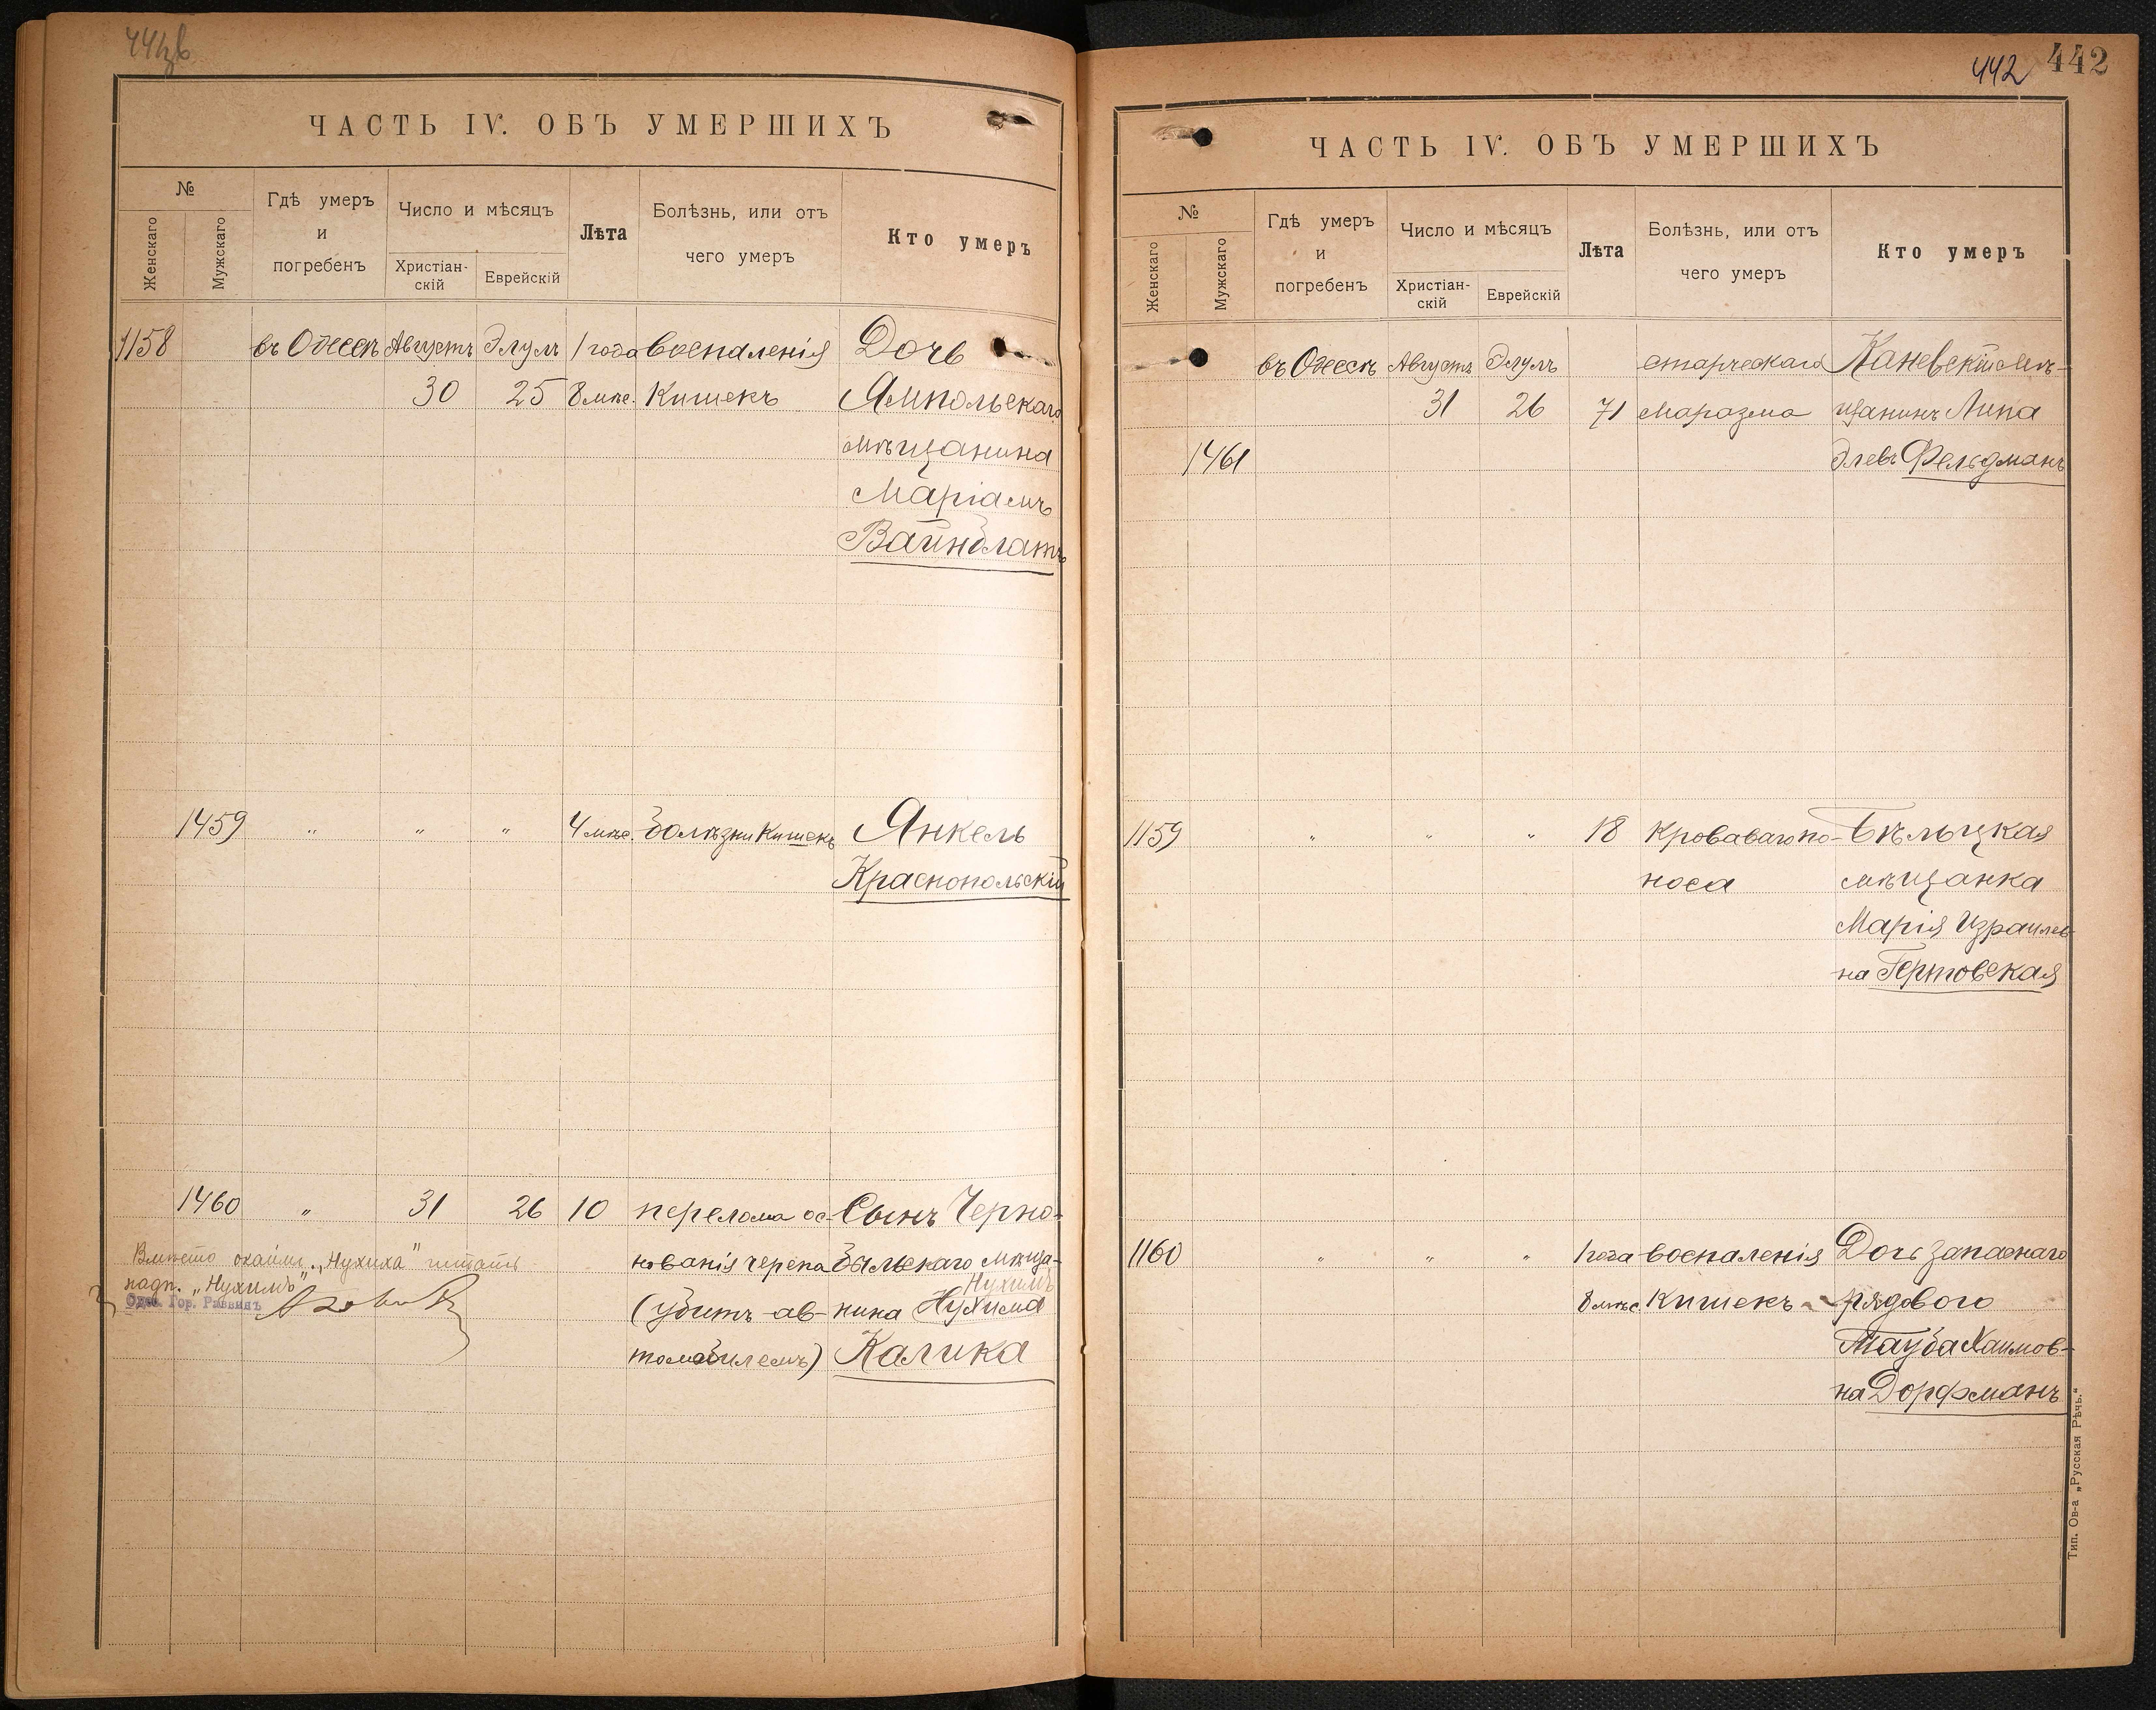 441об
ЧАСТЬ IV. ОБЪ УМЕРШИХЪ
№
Женскаго
Мужскаго
Гдѣ умеръ
и
погребенъ
Число и мѣсяцъ
Христіан-
скій
Еврейскій
Лѣта
Болѣзнь, или отъ
чего умеръ
Кто умеръ
1158 въ Одессѣ Августъ Элулъ 1 года воспаленія Дочь
30 25 8 мѣс. Кишекъ Ямпольскаго
мѣщанина
Маріамъ
Вайнблатъ
1459 " " " 4 мѣс. болѣзни Кишекъ Янкель
Краснопольскій
1460 " 31 26 10 перелома ос- Сынъ Черно-
нованія черепа быльскаго мѣща-
Нухимъ
(убитъ ав- нина Нухима
томобилемъ) Калика
Вмѣсто "Нухима" читать
надп. "Нухимъ"
Одес. Гор. Раввинъ
442 442
ЧАСТЬ IV. ОБЪ УМЕРШИХЪ
№
Женскаго
Мужскаго
Гдѣ умеръ
и
погребенъ
Число и мѣсяцъ
Христіан-
скій
Еврейскій
Лѣта
Болѣзнь, или отъ
чего умеръ
Кто умеръ
въ Одессѣ Августъ Элулъ старческаго Каневскій мѣ-
31 26 71 Маразма щанинъ Липа
1461 Элевъ Фельдманъ
1159 " " " 18 Кроваваго по- Бѣльцкая
носа мѣщанка
Марія Израилев-
на Гертовская
1160 " " " 1 года воспаленія Дочь запаснаго
8 мѣс. Кишекъ рядового
Тауба Хаимов-
на Дорфманъ
Тип. Ов-а „Русская Рѣчь."